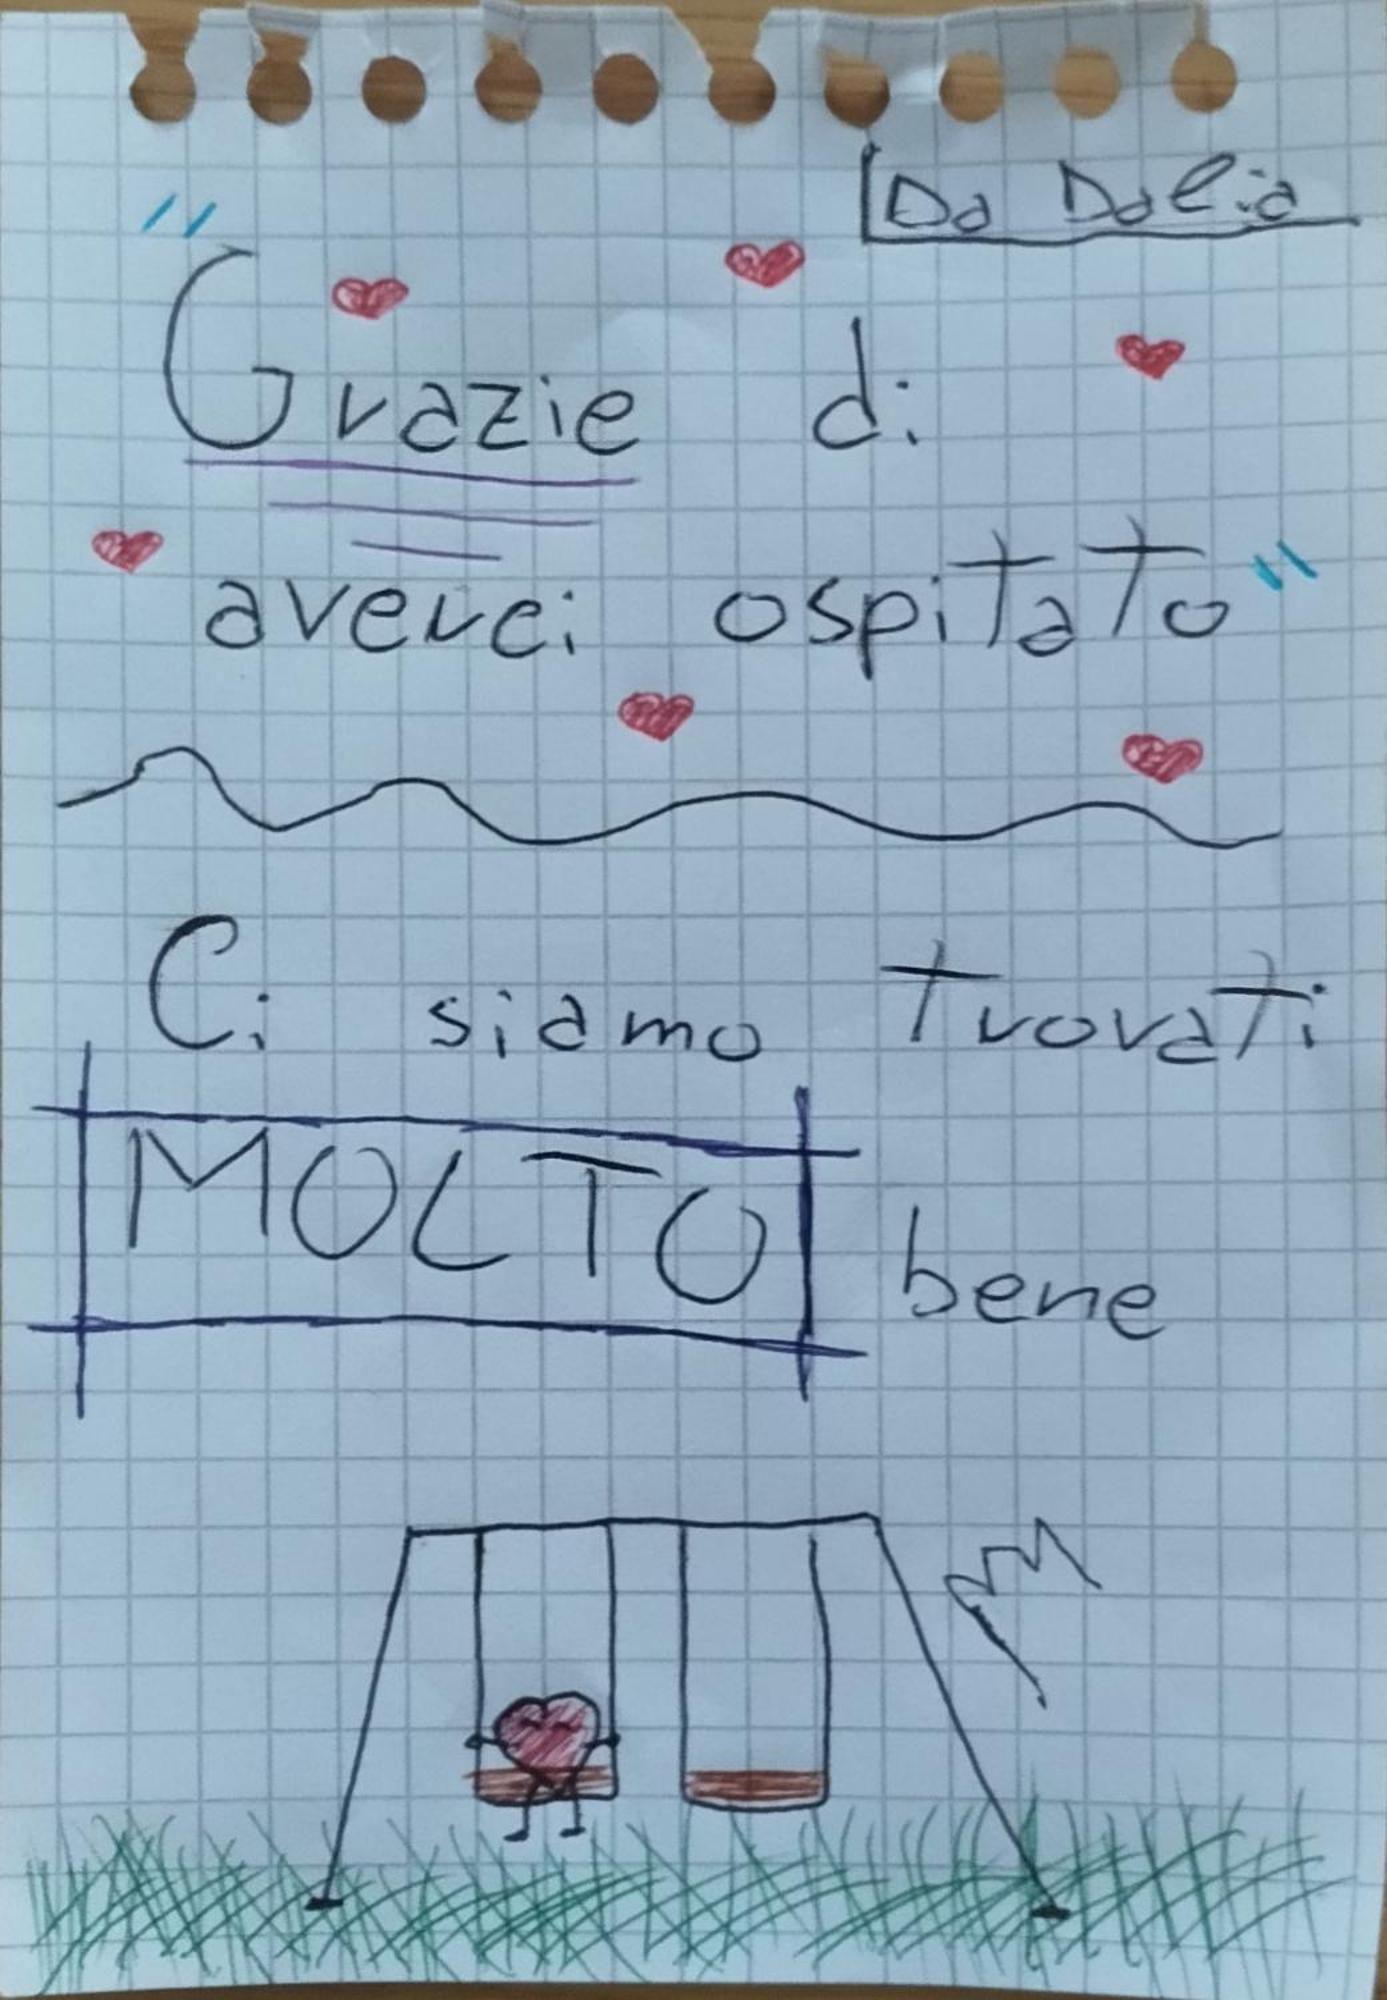 Da Dalia
"Grazie di
averci ospitato"
Ci siamo trovati
MOLTO bene